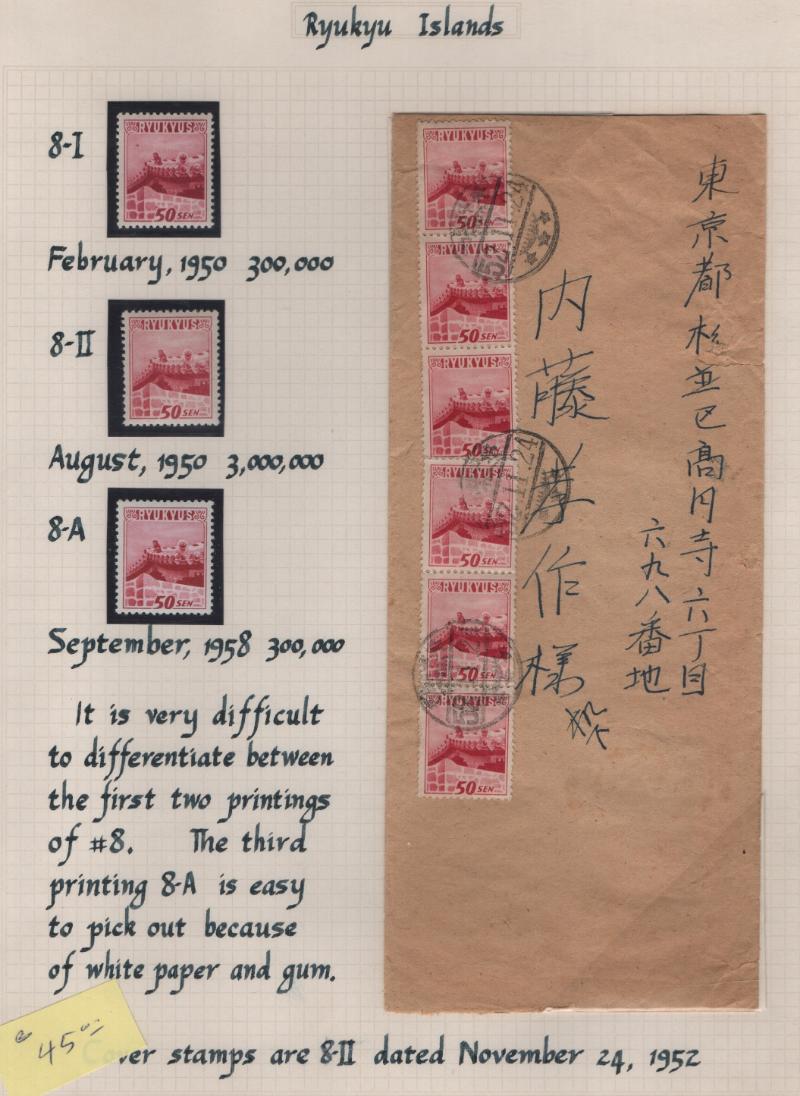 Ryukyu Islands
8-I
RYUKYUS
50 SEN
February, 1950 300,000
8-II
RYUKYUS
50 SEN
August, 1950 3,000,000
8-A
RYUKYUS
50 SEN
September, 1958 300,000
It is very difficult
to differentiate between
the first two printings
of #8. The third
printing 8-A is easy
to pick out because
of white paper and gum.
RYUKYUS
50 SEN
RYUKYUS
50 SEN
RYUKYUS
50 SEN
RYUKYUS
50 SEN
RYUKYUS
50
RYUKYUS
50 SEN
52.11.24
52.11.24
東京都杉並区高円寺六丁目
六九八番地
内藤孝作様
45
Cover stamps are 8-II dated November 24, 1952